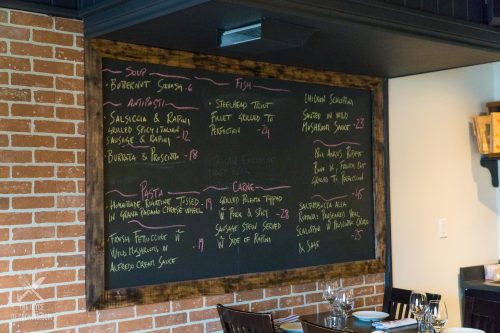 SOUP
BUTTERNUT SQUASH - 6
ANTIPASTI
SALSICCIA & RAPINI
GRILLED SPICY ITALIAN
SAUSAGE & RAPINI - 12
BURRATA & PROSCIUTTO - 18
PASTA
HOMEMADE RIGATONI TOSSED - 19
IN GRANA PADANO CHEESE WHEEL
FRESH FETTUCCINE W
WILD MUSHROOMS IN - 19
ALFREDO CREAM SAUCE
FISH
STEELHEAD TROUT
FILLET GRILLED TO
PERFECTION - 24
CARNE
GRILLED POLENTA TOPPED
W PORK & SPICY - 28
SAUSAGE STEW SERVED
W SIDE OF RAPINI
CHICKEN SCALOPPINI
SAUTEED IN WILD
MUSHROOM SAUCE - 23
AAA ANGUS RIBEYE
BONE IN FRENCH CUT
GRILLED TO PERFECTION
- 45
SALTIMBOCCA ALLA
ROMANA: PROVIMI VEAL
SCALOPPINI W PROSCIUTTO
& SAGE - 25